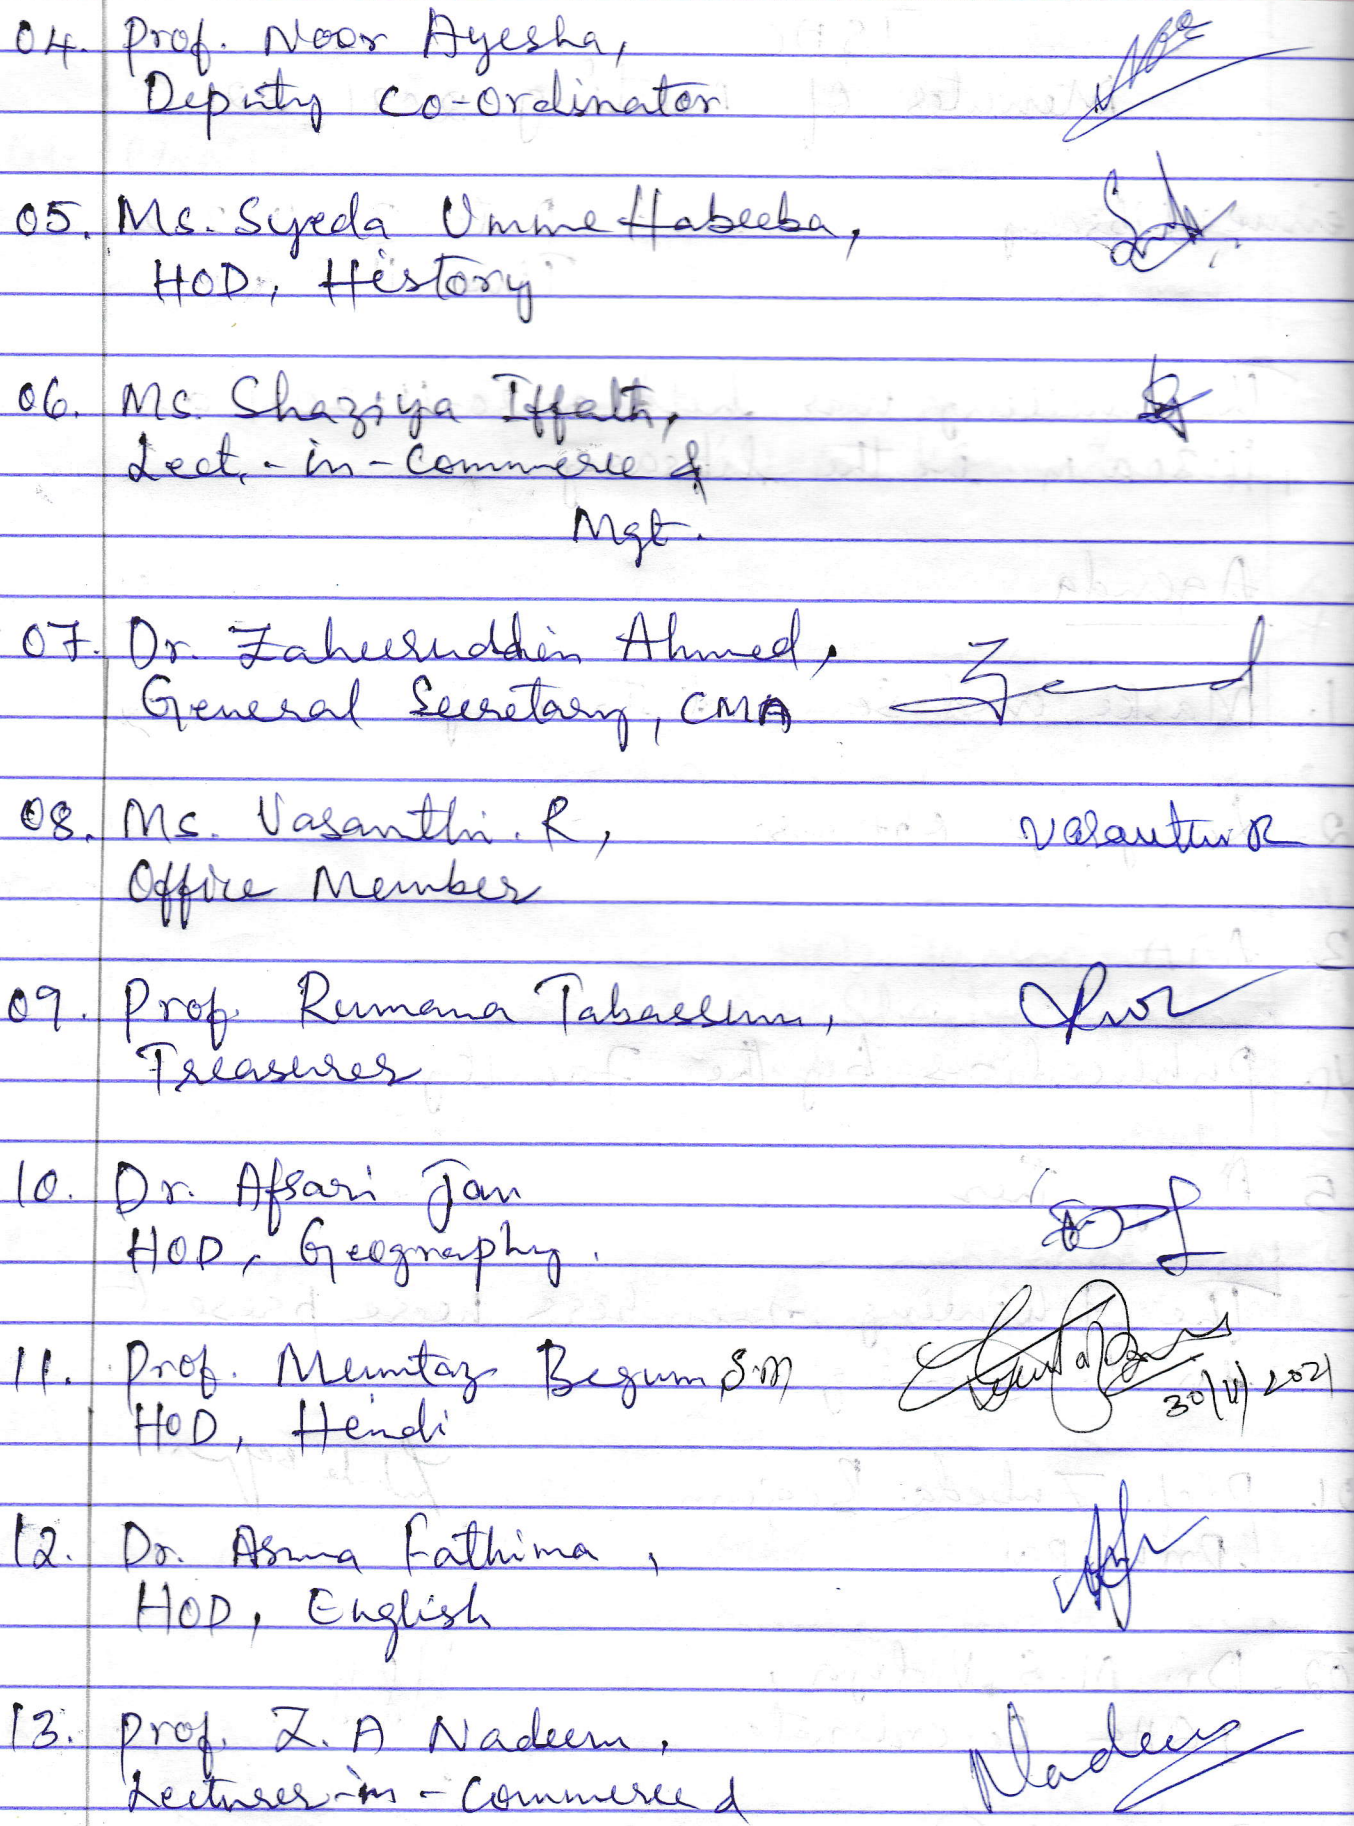 04. Prof. Noor Ayesha,
Deputy Co-ordinator
05. Ms. Syeda Umme Habeeba,
HOD, History
06. Ms. Shaziya Iffath,
Lect.-in-Commerce &
Mgt.
07. Dr. Zaheeruddin Ahmed,
General Secretary, CMA
08. Ms. Vasanthi. R, Vasanthi R
Office Member
09. Prof. Rumana Tabassum,
Treasurer
10. Dr. Afsari Jan
HOD, Geography.
11. Prof. Mumtaz Begum S.M
30/11/2021
HOD, Hindi
12. Dr. Asma Fathima,
HOD, English
13. Prof. Z. A Nadeem, Nadeem
Lecturer-in-Commerce &